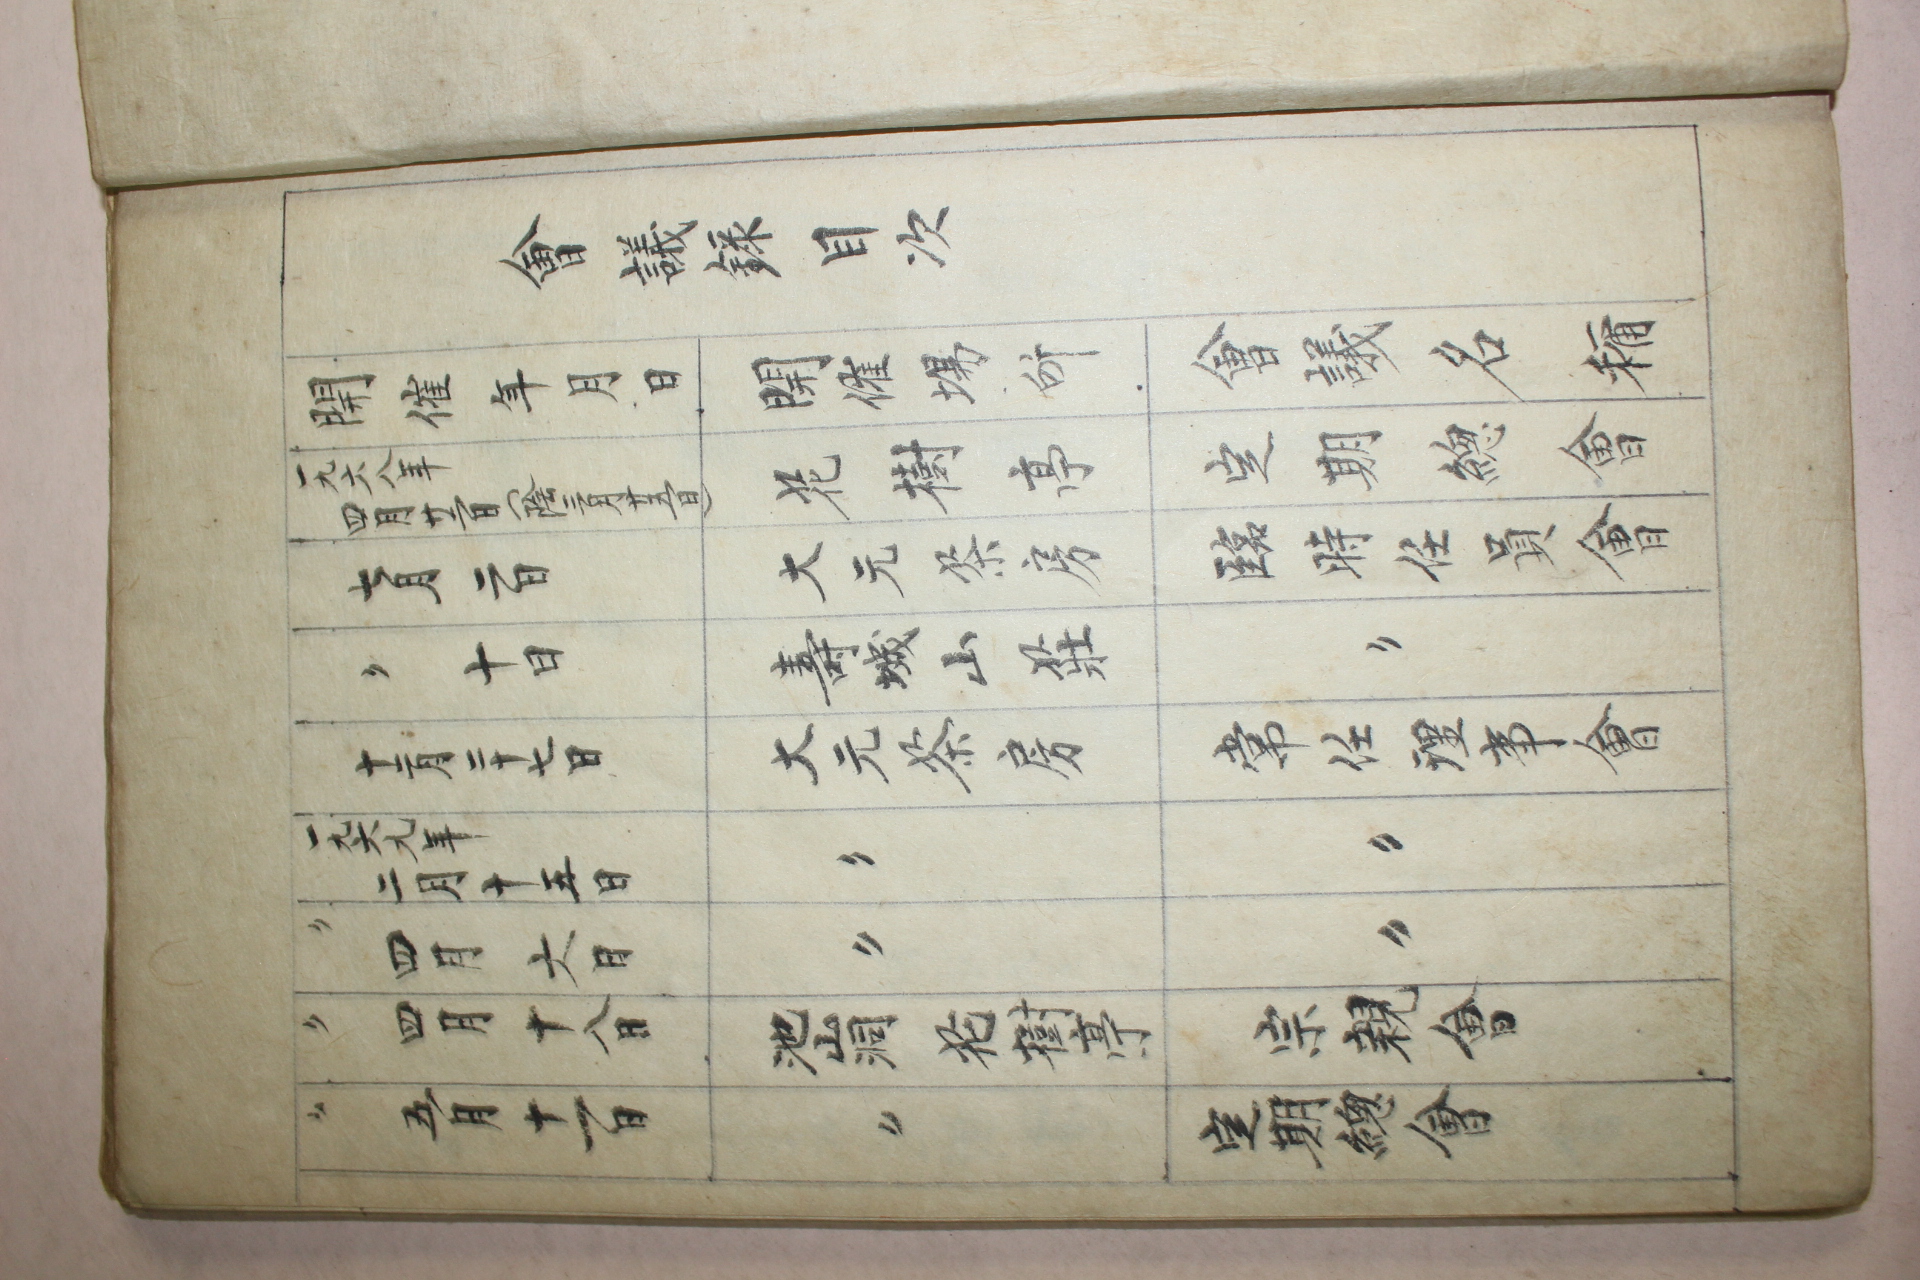 會議錄目次
開催年月日 開催場所 會議名稱
一九六八年
四月廿二日(陰三月廿五日) 花樹亭 定期總會
七月二日 大元茶房 臨時任員會
〃 十日 壽城山莊 〃
十二月二十七日 大元茶房 常任理事會
一九六九年
二月十五日 〃 〃
〃 四月六日 〃 〃
〃 四月十八日 池山洞 花樹亭 宗親會
〃 五月十一日 〃 定期總會